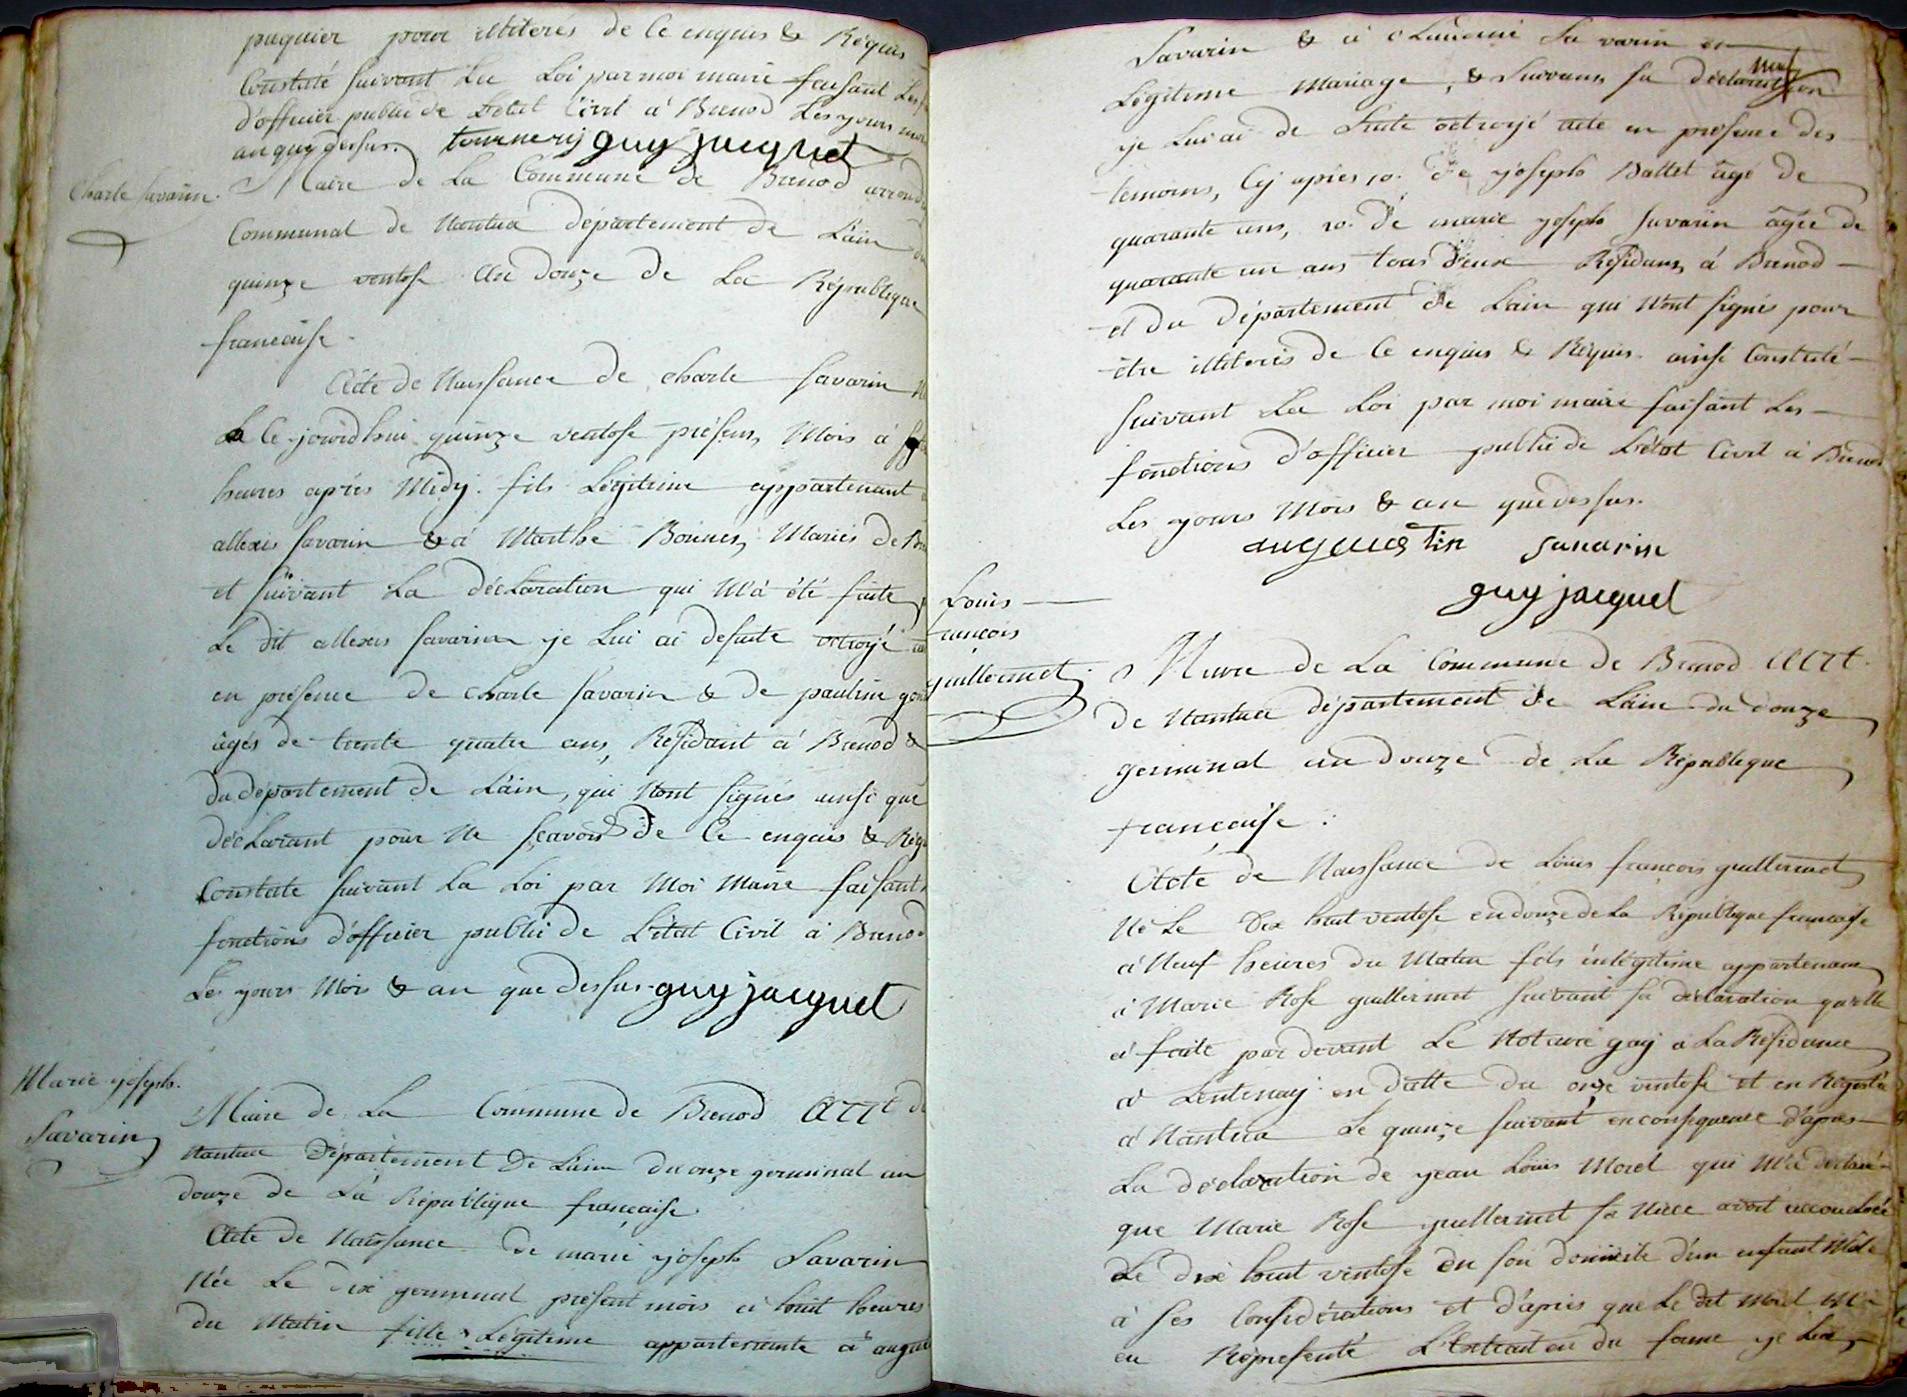 puquier pour illiteres de Ce enquis & Réquis
Constaté suivant La Loi par moi maire faisant Les
d'officier public de L'état Civil à Brenod Les yours mois
an que dessus. tournery guy jacquet
Charle Savarin.
Maire de La Commune de Brenod arrond
Communal de Nantua département de L'ain
quinze ventose An douze de La République
francaise.
Acte de Naissance de charle Savarin
Le Ce jourd'hui quinze ventose présens Mois à
heures aprés Midy. fils Légitime appartenant
allexis Savarin & à Marthe Bonnes, Mariés de
et suivant La déclaration qui M'a été faite
Le dit allexis Savarin je Lui ai desuite octroyé
en présence de charle Savarin & de pauline
âgés de trente quatre ans, Résidant à Brenod &
du département de L'ain, qui Nont signés ainsi que
déclarant pour Ne sçavoir de Ce enquis &
Constate suivant La Loi par Moi Maire faisant
fonctions d'officier public de L'état Civil à Brenod
Les yours Mois & an que dessus. guy jacquet
Marie yoseph.
Savarin
Maire de La Commune de Brenod Arrt de
Nantua Département De L'ain du onze germinal an
douze de La République française.
Acte de Naissance de marie yoseph Savarin
Née Le dix germinal présent mois à huit heures
du Matin fille Légitime appartenante à
Savarin & à Savarin en
Légitime Mariage, & suivans sa déclaration
je Lui ai de Suite octroyé acte en présence des
témoins, Cy après 1o. De yoseph Ballet âgé de
quarante ans, 2o. De marie yoseph Savarin âgée de
quarante un ans tous deux Résidans à Brenod
et du département de L'ain qui Nont signés pour
être illiterés de Ce enquis & Réquis ainsi Constaté
suivant La Loi par moi maire faisant Les
fonctions d'officier public de L'état Civil à Brenod
Les yours Mois & an que dessus.
augustin savarin
guy jacquet
Louis
françois
guillermet
Maire de La Commune de Brenod Arrt.
de Nantua département de L'ain du douze
germinal an douze de La République
française.
Acte de Naissance de Louis françois guillermet
Né Le Dix huit ventose en douze de La République francaise
à Neuf heures du Matin fils inlégitime appartenant
à Marie Rose guillermet suivant sa déclaration qu'elle
à faite par devant Le Notaire gay à La Résidance
à Lentenay en datte du onze ventose et en Régistré
à Nantua Le quinze suivant en conséquence d'après
La déclaration de yean Louis Morel qui M'a déclaré
que Marie Rose guillermet sa Nièce avoit accouchée
Le dix huit ventose en son domicile d'un enfant Mâle
à ses Considérations et d'après que Le dit Morel M'a
en Représenté L'Extrait en du forme je Lui